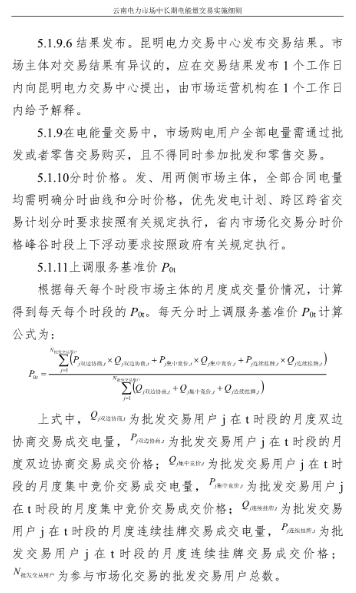 云南电力市场中长期电能量交易实施细则
5.1.9.6 结果发布。昆明电力交易中心发布交易结果。市
场主体对交易结果有异议的，应在交易结果发布 1 个工作日
内向昆明电力交易中心提出，由市场运营机构在 1 个工作日
内给予解释。
5.1.9在电能量交易中，市场购电用户全部电量需通过批
发或者零售交易购买，且不得同时参加批发和零售交易。
5.1.10分时价格。发、用两侧市场主体，全部合同电量
均需明确分时曲线和分时价格，优先发电计划、跨区跨省交
易计划分时要求按照有关规定执行，省内市场化交易分时价
格峰谷时段上下浮动要求按照政府有关规定执行。
5.1.11上调服务基准价 P0t
根据每天每个时段市场主体的月度成交量价情况，计算
得到每天每个时段的 P0t。每天分时上调服务基准价 P0t 计算
公式为：
P0t = ∑(Pj双边协商,t×Qj双边协商,t+Pj集中竞价,t×Qj集中竞价,t+Pj连续挂牌,t×Qj连续挂牌,t)
∑(Qj双边协商,t+Qj集中竞价,t+Qj连续挂牌,t)
上式中，Qj双边协商,t 为批发交易用户 j 在 t 时段的月度双边
协商交易成交电量，Pj双边协商,t 为批发交易用户 j 在 t 时段的月
度双边协商交易成交价格；Qj集中竞价,t 为批发交易用户 j 在 t 时
段的月度集中竞价交易成交电量，Pj集中竞价,t 为批发交易用户 j
在 t 时段的月度集中竞价交易成交价格；Qj连续挂牌,t 为批发交易
用户 j 在 t 时段的月度连续挂牌交易成交电量，Pj连续挂牌,t 为批
发交易用户 j 在 t 时段的月度连续挂牌交易成交价格；
N批发交易用户 为参与市场化交易的批发交易用户总数。